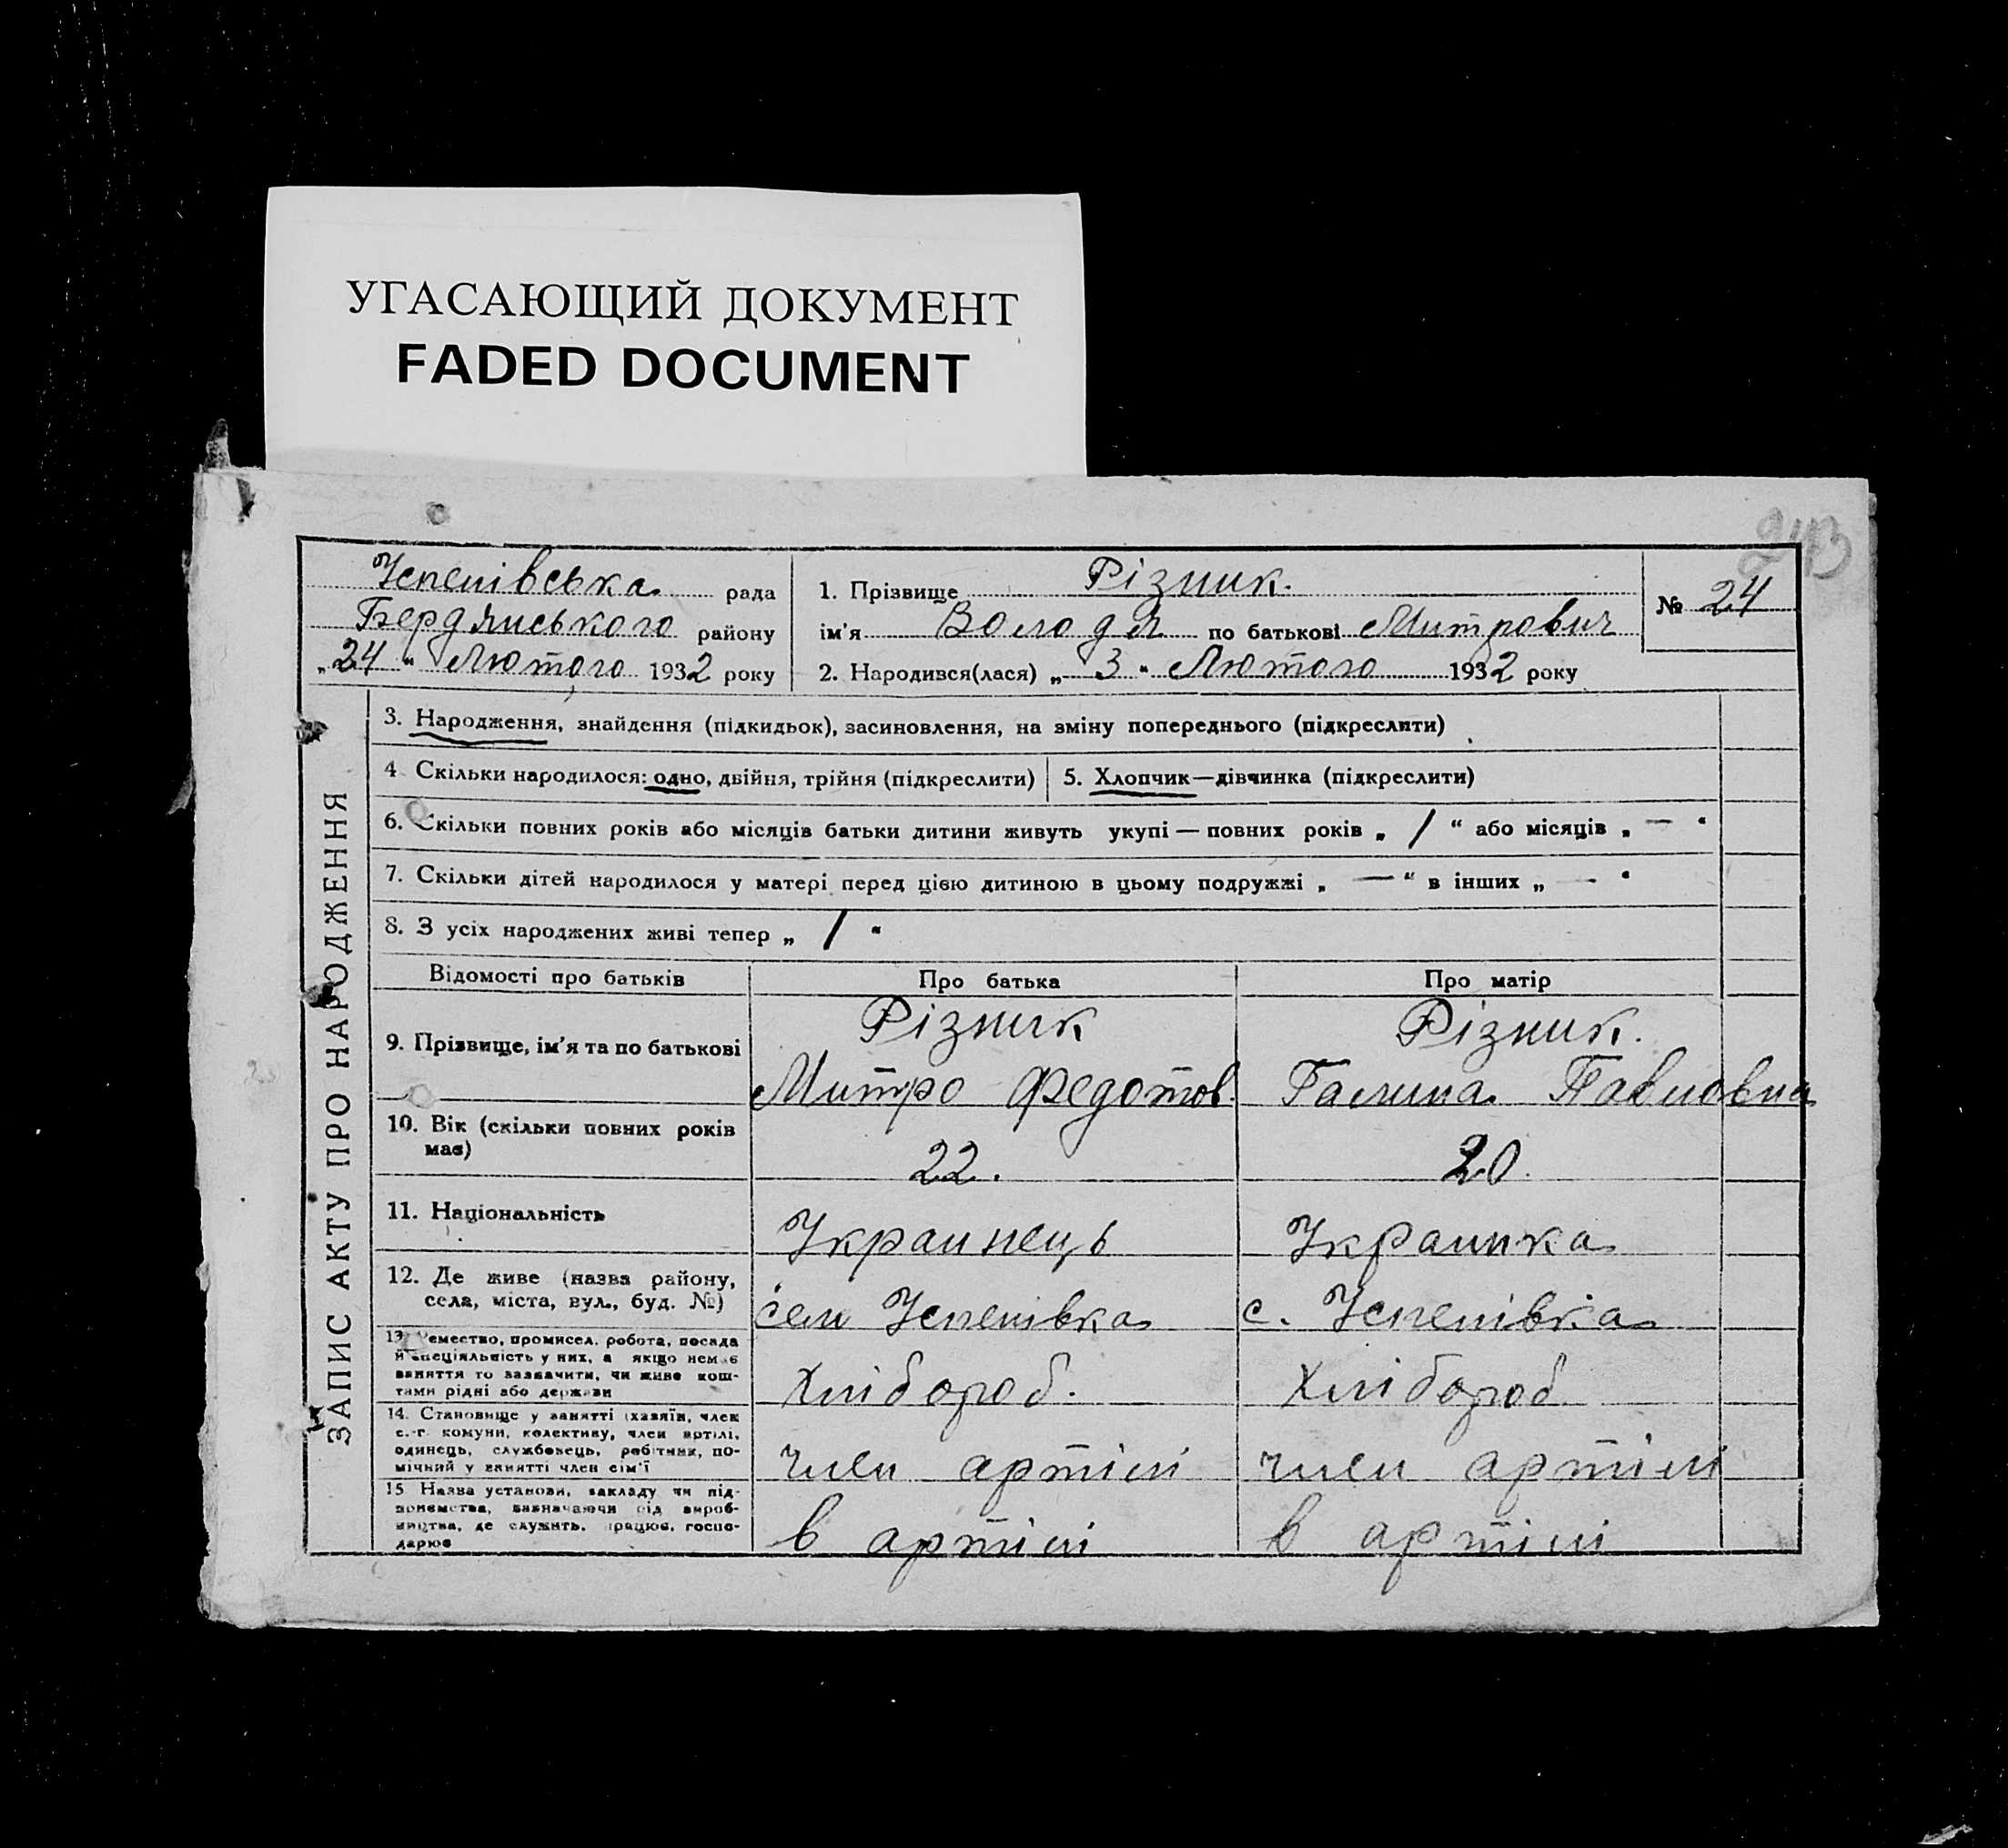 УГАСАЮЩИЙ ДОКУМЕНТ
FADED DOCUMENT
243
Успенівська рада
Бердянського району
„24“ Лютого 1932 року
1. Прізвище Різник.
ім’я Володя по батькові Митрович
2. Народився(лася) „3“ Лютого 1932 року
№ 24
ЗАПИС АКТУ ПРО НАРОДЖЕННЯ
3. Народження, знайдення (підкидьок), засиновлення, на зміну попереднього (підкреслити)
4 Скільки народилося: одно, двійня, трійня (підкреслити)
5. Хлопчик—дівчинка (підкреслити)
6. Скільки повних років або місяців батьки дитини живуть укупі — повних років „ 1 “ або місяців „ — “
7. Скільки дітей народилося у матері перед цією дитиною в цьому подружжі „ — “ в інших „ — “
8. З усіх народжених живі тепер „ 1 “
Відомості про батьків Про батька Про матір
9. Прізвище, ім’я та по батькові
Різник
Митро Федотов.
Різник.
Галина Павловна
10. Вік (скільки повних років
має)
22.
20.
11. Національність
Украинець
Украинка
12. Де живе (назва району,
села, міста, вул., буд. №)
сел Успенівка
с. Успенівка
13. Ремество, промисел, робота, посада
й спеціяльність у них, а якщо немає
заняття то зазначити, чи живе кош-
тами рідні або держави
Хлібороб.
Хлібороб
14. Становище у занятті (хазяїн, член
с.-г. комуни, колективу, член артілі,
одинець, службовець, робітник, по-
мічний у занятті член сім’ї
член артілі
член артілі
15 Назва установи, закладу чи під-
приємства, визначаючи рід вироб-
ництва, де служить, працює, госпо-
дарює
в артілі
в артілі